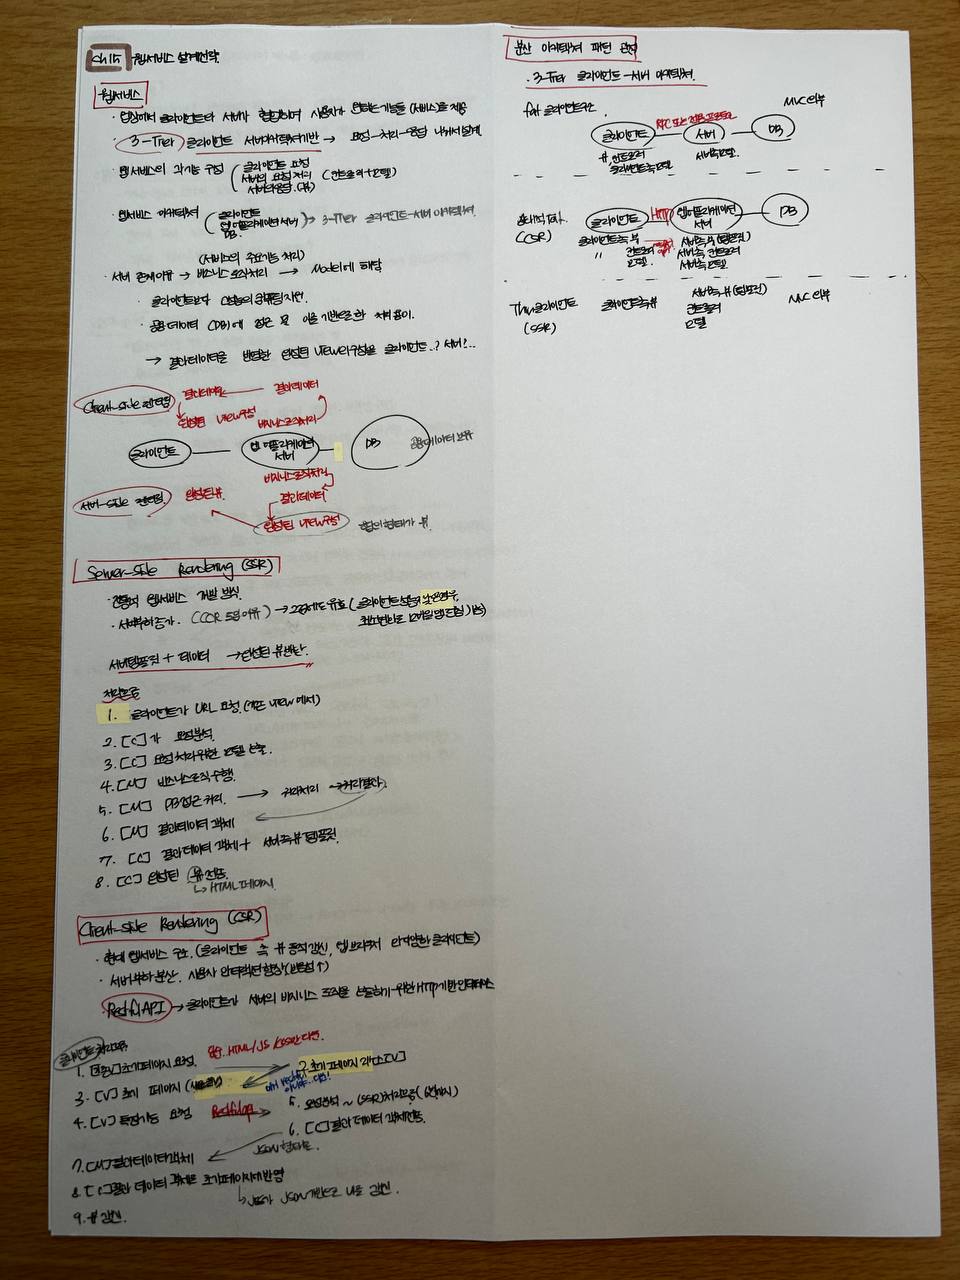 ch15 웹서비스 설계전략
웹서비스
· 웹상에서 클라이언트와 서버가 협력하여 사용자가 원하는 기능들 (서비스)을 제공
· 3-Tier 클라이언트 서버아키텍처기반 → 요청-처리-응답 나눠서 설계
· 웹서비스의 각기능 구성
클라이언트 요청
서버의 요청 처리 (컨트롤러+모델)
서버의응답 (뷰)
· 웹서비스 아키텍처
클라이언트
웹 어플리케이션 서버 → 3-Tier 클라이언트-서버 아키텍처
DB
(서비스의 주요기능 처리)
· 서버 존재이유 → 비즈니스 로직처리 → Model에 해당
· 클라이언트보다 고성능의 컴퓨팅자원
· 공용데이터 (DB)에 접근 및 이를 기반으로한 처리용이
→ 결과데이터를 반영한 완성된 VIEW의 구성을 클라이언트..? 서버?..
Client-side 렌더링
결과데이터 결과데이터
완성된 VIEW구성 비즈니스로직처리
클라이언트 웹 어플리케이션 서버 DB 공용데이터 보유
비즈니스로직처리
결과데이터
서버-side 렌더링 완성된뷰
완성된 VIEW구성 응답의형태가 뷰
Server-side Rendering (SSR)
· 전통적 웹서비스 개발 방식
· 서버부하증가. (CSR 등장이유) → 2000년대도 유효 (클라이언트성능이 낮은경우,
서버템플릿 + 데이터 → 완성된 뷰반환
처리흐름
1. 클라이언트가 URL 요청 (기존 VIEW에서)
2. [C]가 요청분석
3. [C] 요청처리위한 모델 호출
4. [M] 비즈니스로직수행
5. [M] DB접근 처리. → 쿼리처리 → 처리결과
6. [M] 결과데이터 객체
7. [C] 결과 데이터 객체 + 서버측뷰 템플릿
8. [C] 완성된 뷰 전송
↳ HTML 페이지
Client-side Rendering (CSR)
· 현대 웹서비스 구조 (클라이언트 측 뷰 동적갱신, 웹 브라우저 외 다양한 클라이언트)
· 서버부하 분산. 사용자 인터랙션향상 (반응성↑)
Restful API → 클라이언트가 서버의 비지니스 로직을 호출하기 위한 HTTP기반 인터페이스
클라이언트 처리흐름
HTML/JS/CSS만 다운
1. [V] 초기페이지 요청.
2. 초기 페이지 리소스 [V]
3. [V] 초기 페이지
4. [V] 특정기능 요청 Restful api
5. 요청분석 ~ (SSR처리흐름 6번까지)
6. [C] 결과 데이터 객체전송
JSON 형태로
7. [M] 결과데이터객체
8. [C] 결과 데이터 객체로 초기페이지에 반영
↳ JS가 JSON 기반으로 뷰를 갱신.
9. 뷰 갱신.
분산 아키텍처 패턴 관점
· 3-Tier 클라이언트-서버 아키텍처
fat 클라이언트 MVC 외부
클라이언트 RPC 또는 전용 프로토콜 서버 DB
뷰, 컨트롤러 서버측모델
클라이언트측모델
(CSR) 클라이언트 HTTP 웹 어플리케이션 서버 DB
클라이언트측 뷰 서버측 뷰 (템플릿)
〃 컨트롤러 서버측 컨트롤러
모델 서버측 모델
Thin 클라이언트 클라이언트측뷰 서버측뷰 (템플릿) MVC 외부
(SSR) 컨트롤러
모델